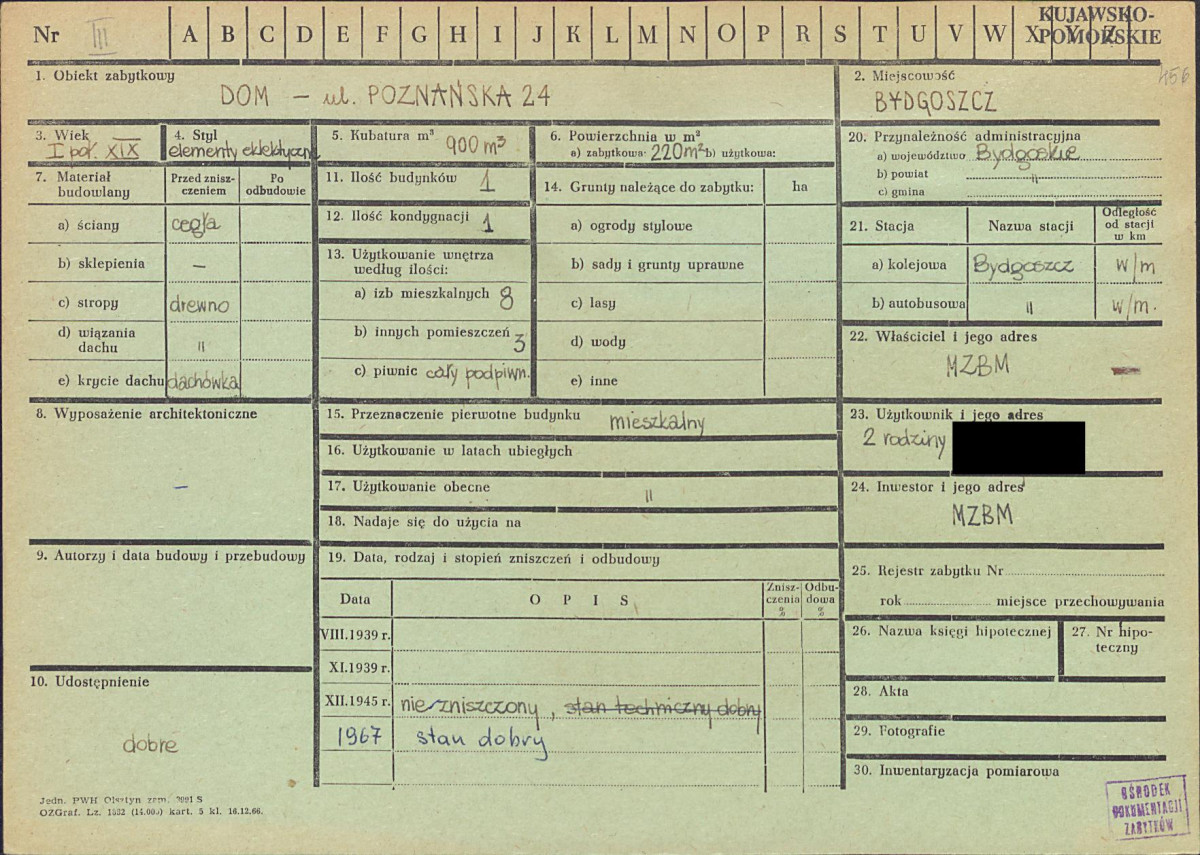 Nr III A B C D E F G H I J K L M N O P R S T U V W X Y Z
KUJAWSKO-
POMORSKIE
456
1. Obiekt zabytkowy
DOM – ul. POZNAŃSKA 24
2. Miejscowość
BYDGOSZCZ
3. Wiek
I poł. XIX
4. Styl
elementy eklektyczne
5. Kubatura m³ 900 m³
6. Powierzchnia w m²
a) zabytkowa: 220m² b) użytkowa:
7. Materiał
budowlany
Przed znisz-
czeniem
Po
odbudowie
a) ściany cegła
b) sklepienia –
c) stropy drewno
d) wiązania
dachu "
e) krycie dachu dachówka
8. Wyposażenie architektoniczne
–
9. Autorzy i data budowy i przebudowy
10. Udostępnienie
dobre
11. Ilość budynków 1
12. Ilość kondygnacji 1
13. Użytkowanie wnętrza
według ilości:
a) izb mieszkalnych 8
b) innych pomieszczeń 3
c) piwnic cały podpiwn.
14. Grunty należące do zabytku: ha
a) ogrody stylowe
b) sady i grunty uprawne
c) lasy
d) wody
e) inne
15. Przeznaczenie pierwotne budynku mieszkalny
16. Użytkowanie w latach ubiegłych
17. Użytkowanie obecne "
18. Nadaje się do użycia na
19. Data, rodzaj i stopień zniszczeń i odbudowy
Data
O P I S
Znisz-
czenia
%
Odbu-
dowa
%
VIII.1939 r.
XI.1939 r.
XII.1945 r. niezniszczony, stan techniczny dobry
1967 stan dobry
20. Przynależność administracyjna
a) województwo Bydgoskie
b) powiat "
c) gmina
21. Stacja
Nazwa stacji
Odległość
od stacji
w km
a) kolejowa Bydgoszcz w/m
b) autobusowa " w/m.
22. Właściciel i jego adres
MZBM –
23. Użytkownik i jego adres
2 rodziny
24. Inwestor i jego adres
MZBM
25. Rejestr zabytku Nr
rok miejsce przechowywania
26. Nazwa księgi hipotecznej
27. Nr hipo-
teczny
28. Akta
29. Fotografie
30. Inwentaryzacja pomiarowa
Jedn. PWH Olsztyn zam. 2091 S
OZGraf. Lz. 1882 (14.000) kart. 5 kl. 16.12.66.
OŚRODEK
DOKUMENTACJI
ZABYTKÓW